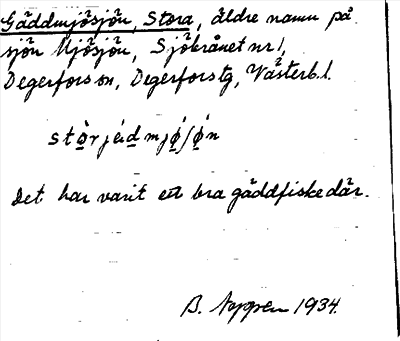 Gäddmjösjön, Stora, äldre namn på
sjön Mjösjön, Sjöbrånet nr 1,
Degerfors sn, Degerfors tg, Västerb. l.
Det har varit ett bra gäddfiske där.
B. 1934.